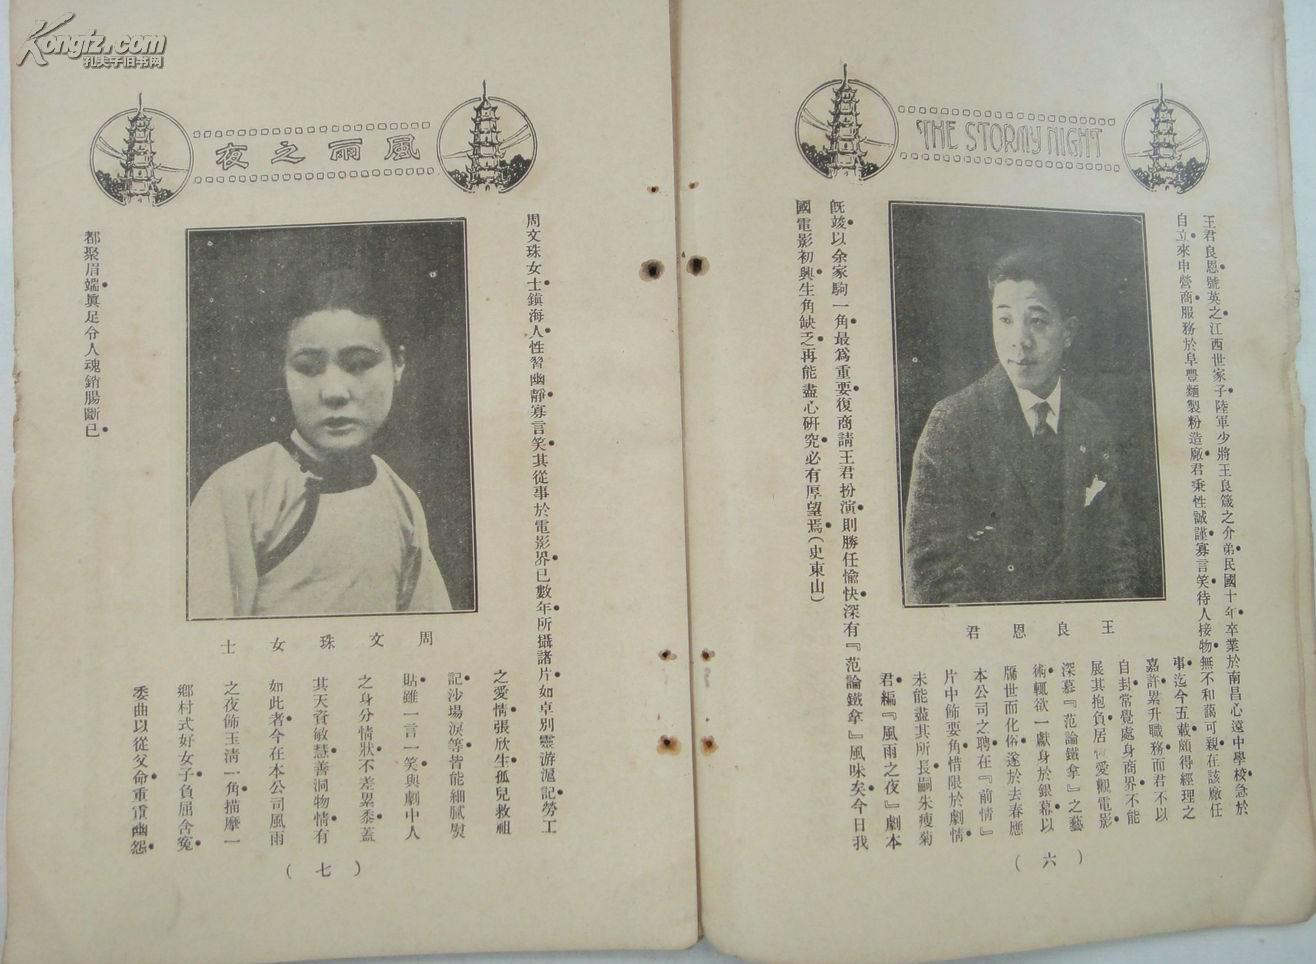 Kongfz.com
孔夫子旧书网
THE STORMY NIGHT
王君良恩號英之江西世家子陸軍少將王良箴之介弟民國十年卒業於南昌心遠中學校急於
自立來申營商服務於阜豐麵製粉造廠君秉性誠謹寡言笑待人接物無不和藹可親在該廠任
事迄今五載頗得經理之
嘉許累升職務而君不以
自封常覺處身商界不能
展其抱負居恆愛觀電影
深慕『范論鐵拿』之藝
術輒欲一獻身於銀幕以
厲世而化俗遂於去春應
本公司之聘在『前情』
片中飾要角惜限於劇情
未能盡其所長嗣朱瘦菊
君編『風雨之夜』劇本
既竣以余家駒一角最爲重要復商請王君扮演則勝任愉快深有『范論鐵拿』風味矣今日我
國電影初興生角缺乏再能盡心研究必有厚望焉(史東山)
王良恩君
(六)
風雨之夜
周文珠女士鎮海人性習幽靜寡言笑其從事於電影界已數年所攝諸片如卓別靈游滬記勞工
之愛情張欣生孤兒救祖
記沙場淚等皆能細膩熨
貼雖一言一笑與劇中人
之身分情狀不差累黍蓋
其天資敏慧善洞物情有
如此者今在本公司風雨
之夜飾玉清一角描摩一
鄉村式好女子負屈含冤
委曲以從父命重重幽怨
都聚眉端眞足令人魂銷腸斷已
周文珠女士
(七)